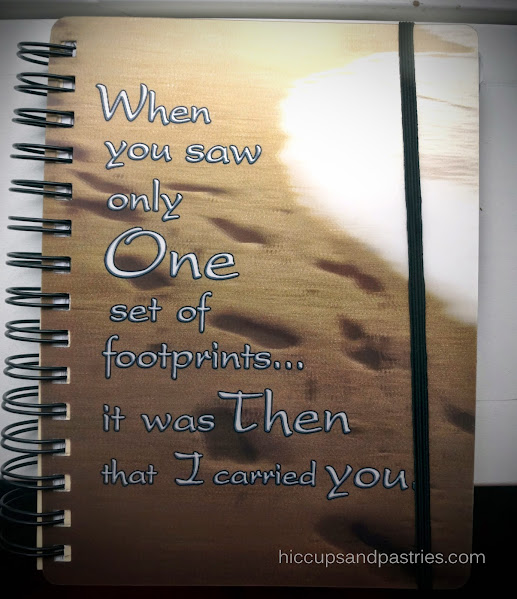 When
you saw
only
One
set of
footprints...
it was Then
that I carried you.
hiccupsandpastries.com